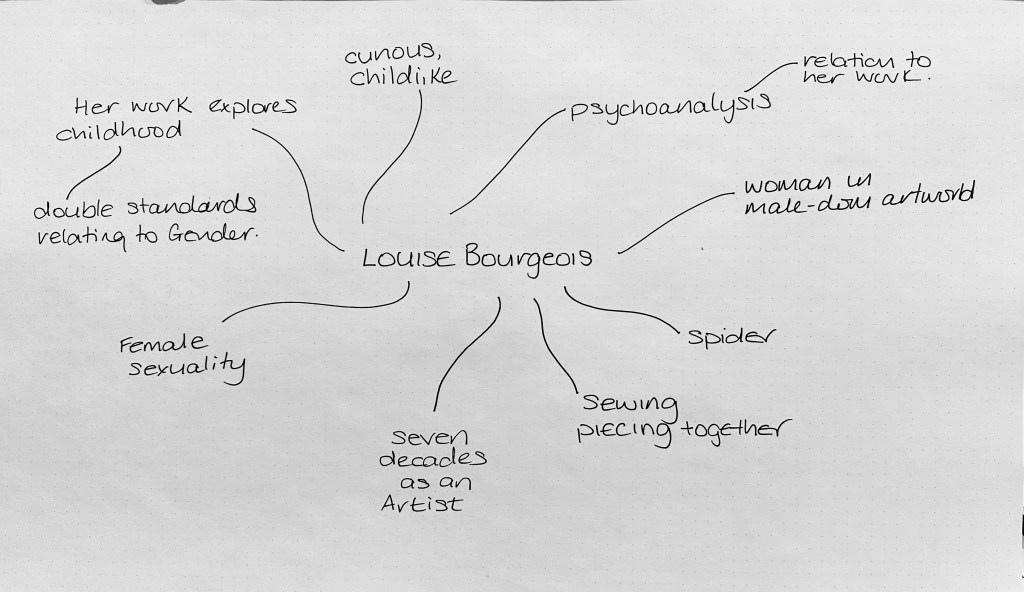 curious,
childlike
relation to
her work.
psychoanalysis
Her work explores
childhood
double standards
relating to Gender.
woman in
male-dom artworld
LOUISE Bourgeois
Female
sexuality
spider
Sewing
piecing together
seven
decades
as an
Artist